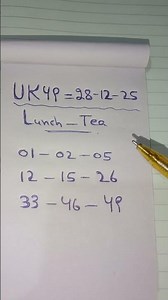 UK49=28-12-25
Lunch-Tea
01-02-05
12-15-26
33-46-49